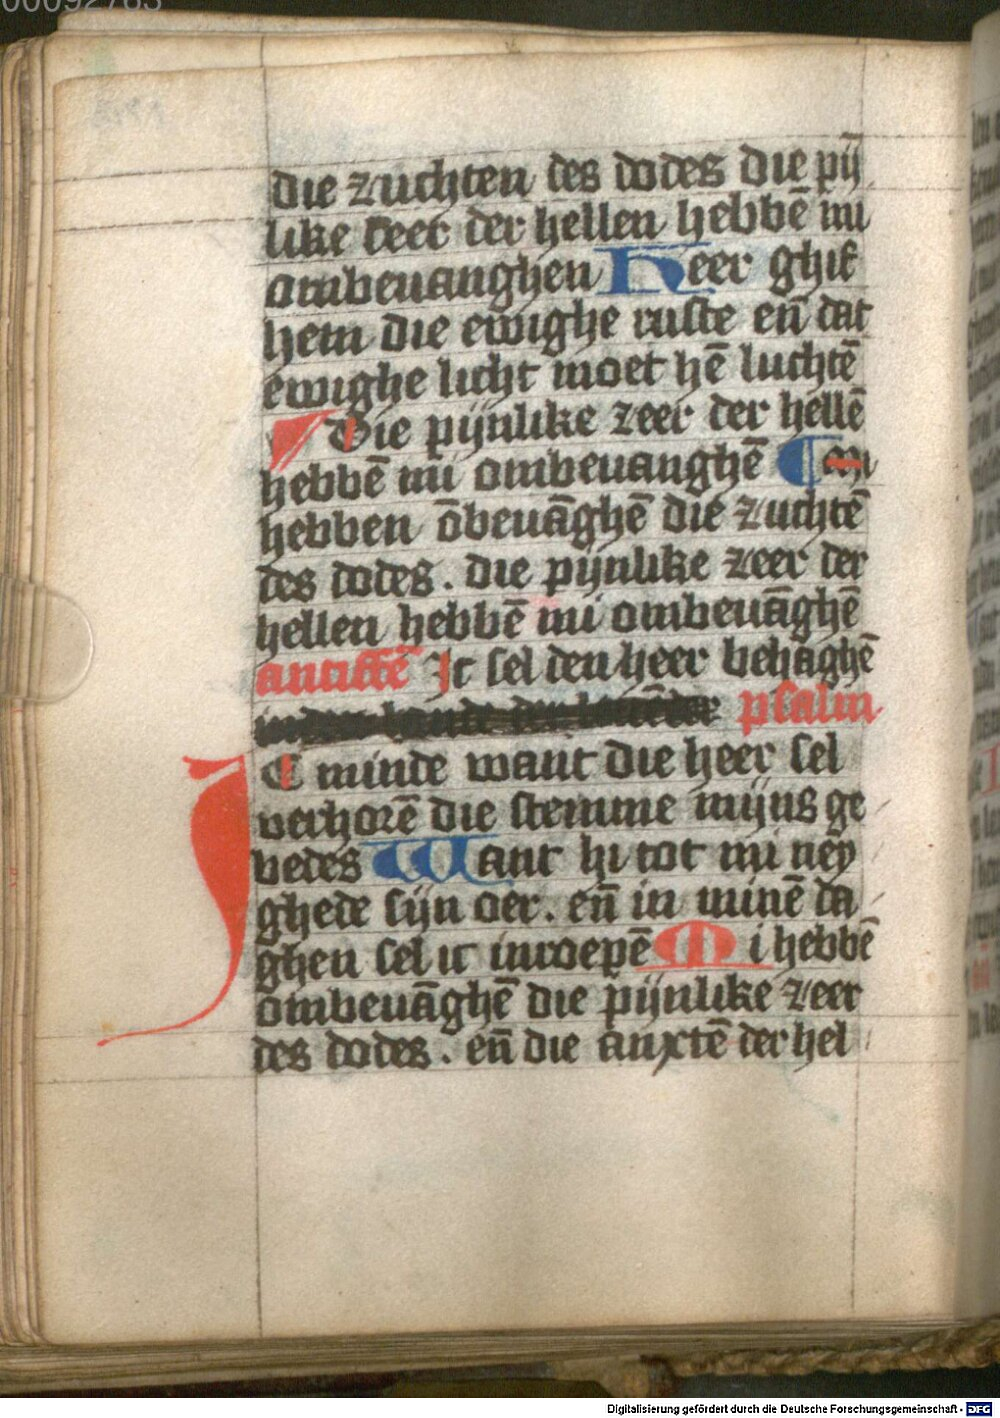 00092763
die zuchten des dodes die pij
like seer der hellen hebbē mi
ombeuanghen Heer ghif
hem die ewighe ruste en̄ dat
ewighe licht moet hē luchtē
Die pijnlike zeer der hellē
hebbē mi ombeuanghē Mi
hebben ōbeuāghē die zuchtē
des dodes . die pijnlike zeer der
hellen hebbē mi ombeuāghē
antiffē It sel den heer behaghē
in den lande der psalm
Ic minde want die heer sel
verhorē die stemme mijns ge
bedes Want hi tot mi ney
ghede sijn oer . en̄ in minē da
ghen sel ic inroepē Mi hebbē
ombeuāghē die pijnlike zeer
des dodes . en̄ die anxtē der hel
Digitalisierung gefördert durch die Deutsche Forschungsgemeinschaft - DFG